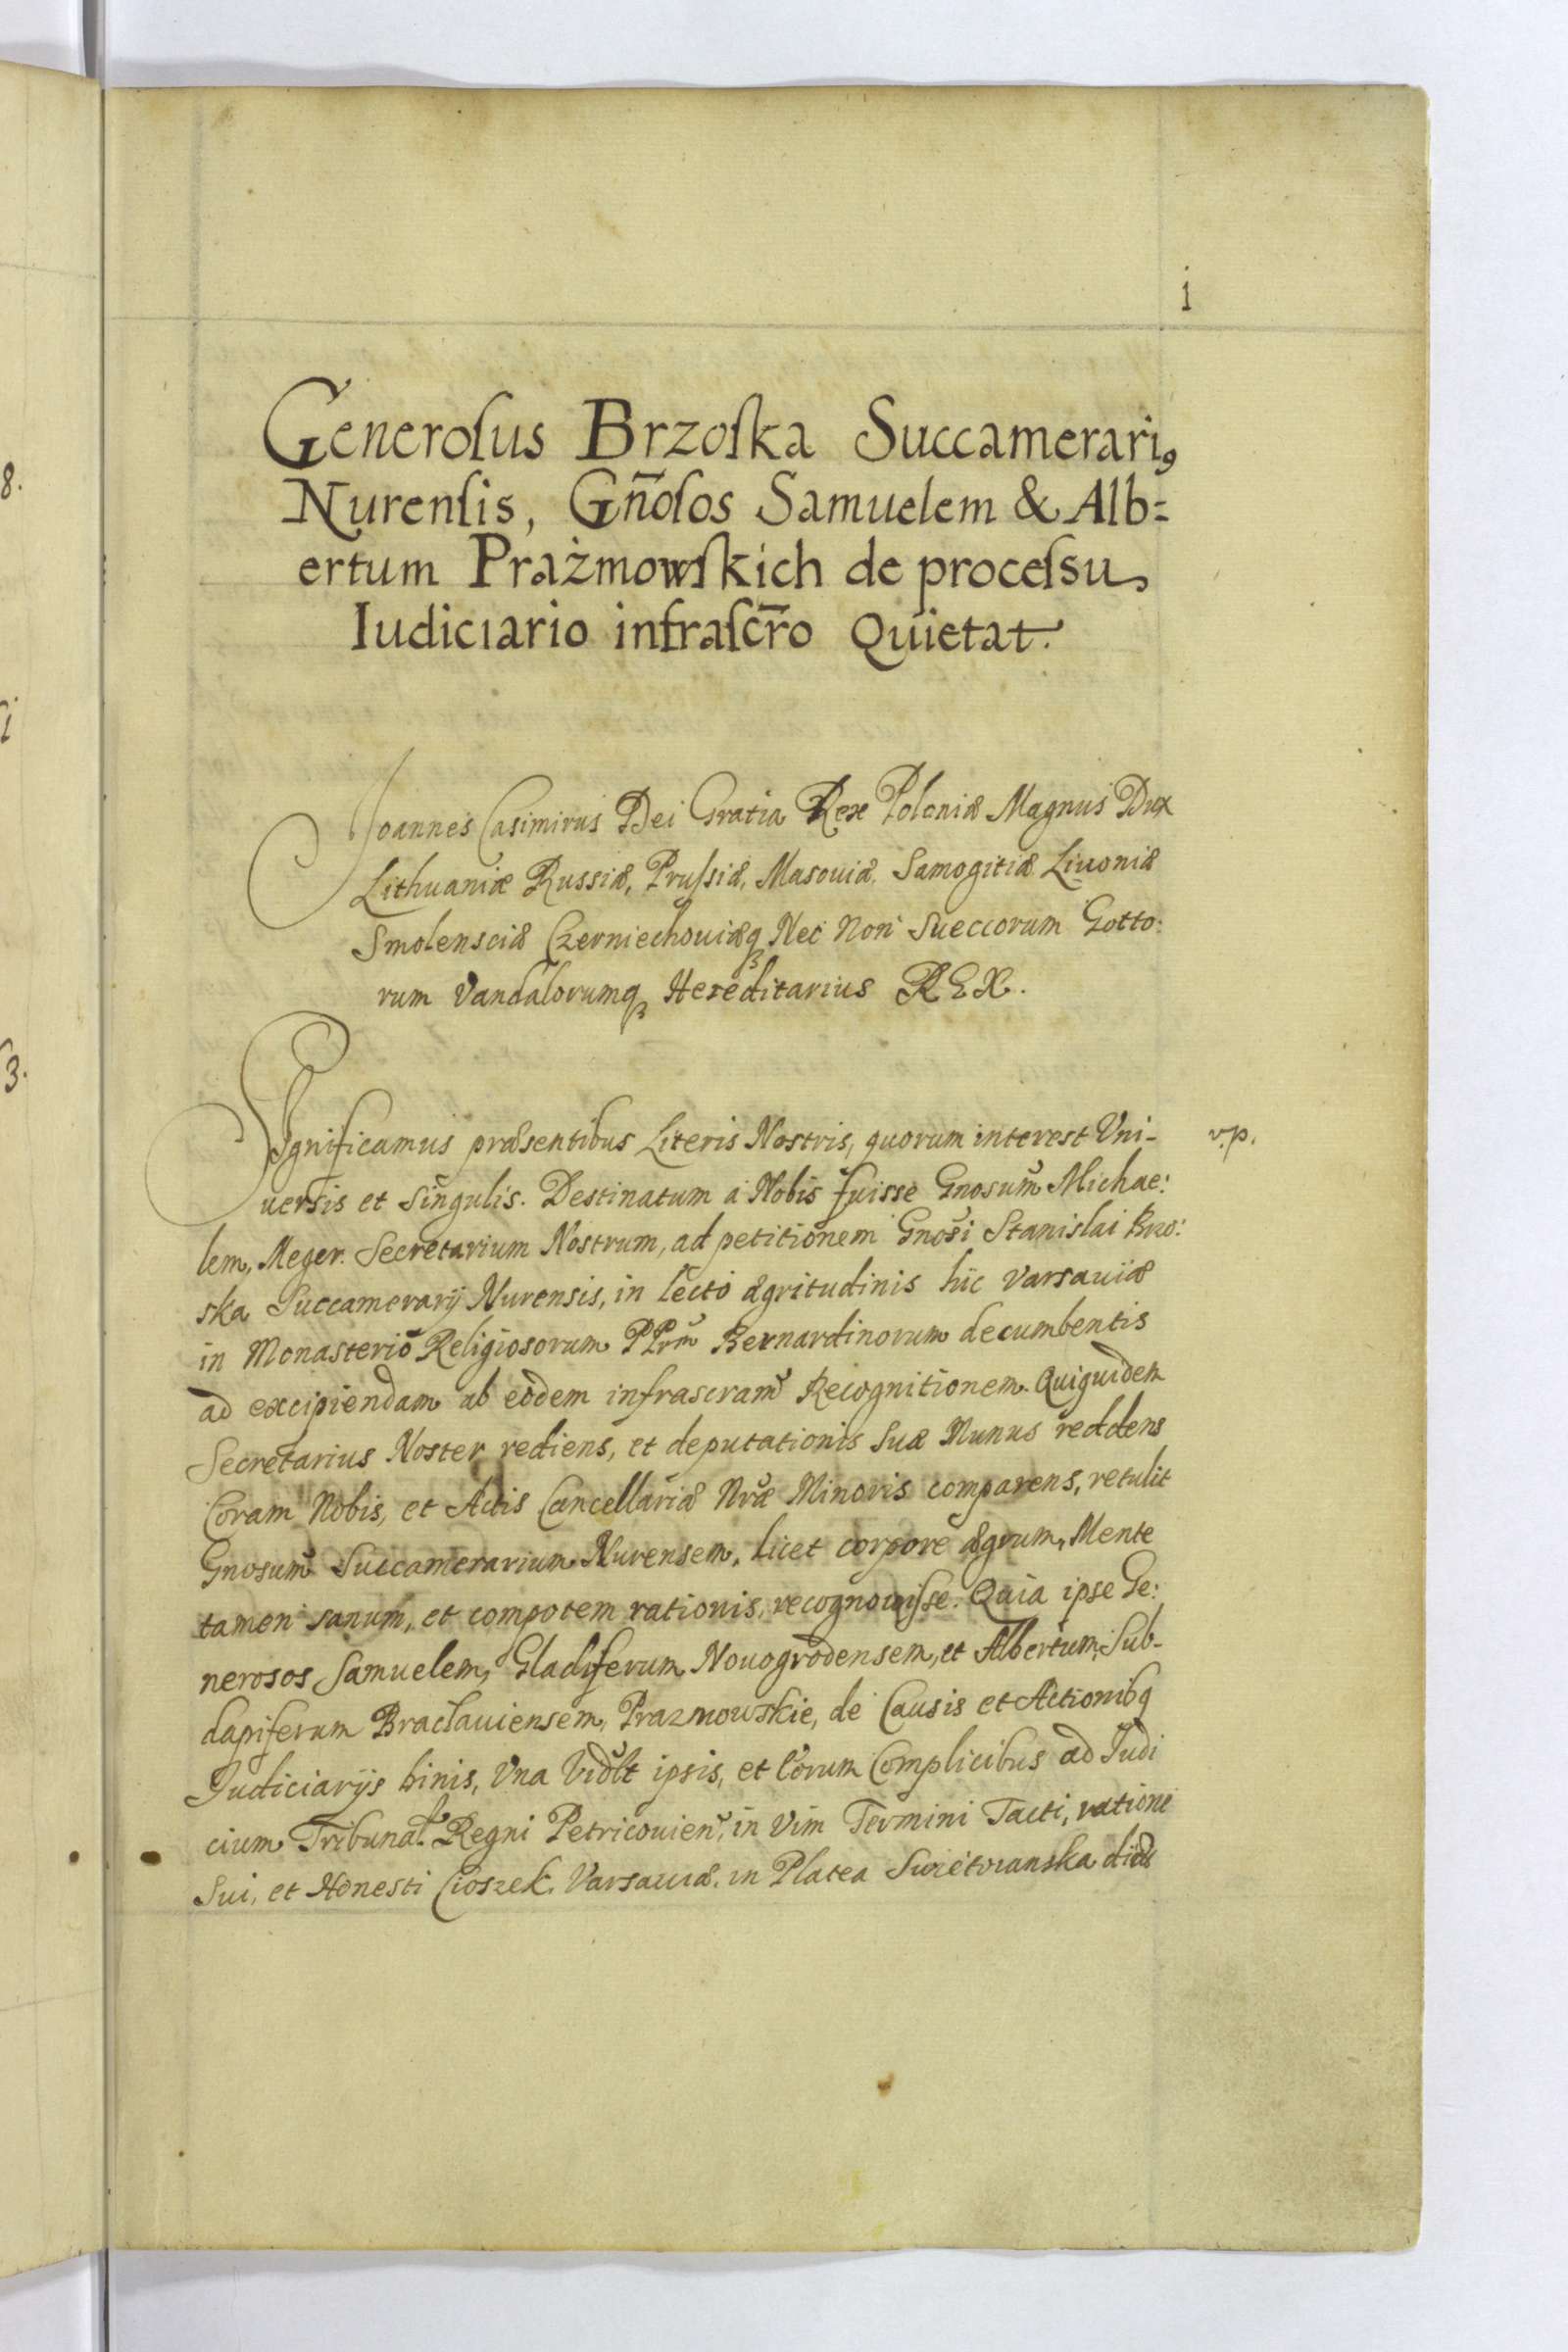 1
Generosus Brzoska Succamerari9
Nurensis, Gn̄osos Samuelem & Alb=
ertum Prażmowskich de processu
Iudiciario infrascr̄o Quietat.
Joannes Casimirus Dei Gratia Rex Poloniæ Magnus Dux
Lithuaniæ Russiæ, Prussiæ, Masouiæ, Samogitiæ Liuoniæ
Smolensciæ Czerniechouiæq3 Nec Non Sueccorum Gotto:
rum Vandalorumq3 Hereditarius REX.
Significamus præsentibus Literis Nostris, quorum interest Vni-
v.p.
uersis et singulis. Destinatum a Nobis fuisse Gnosum Michae:
lem, Meger. Secretarium Nostrum, ad petitionem Gnosi Stanislai Brzo:
ska Succamerarij Nurensis, in lecto ægritudinis hic Varsauiæ
in Monasterio Religiosorum PPrm Bernardinorum decumbentis
ad excipiendam ab eodem infrascram Recognitionem. Quiquidem
Secretarius Noster rediens, et deputationis suæ Munus reddens
Coram Nobis, et Actis Cancellariæ Nræ Minoris comparens, retulit
Gnosum Succamerarium Nurensem, licet corpore ægrum, Mente
tamen sanum, et compotem rationis, recognouisse. Quia ipse Ge:
nerosos Samuelem, Gladiferum Nouogrodensem, et Albertum, Sub-
dapiferum Braclauiensem, Prazmowskie, de Causis et Actionibq
Judiciarijs binis, Vna Vidlt ipsis, et Eorum Complicibus ad Judi
cium Tribunal. Regni Petricouien, in Vim Termini Tacti, ratione
Sui, et Honesti Cioszek. Varsauiæ. in Platea Swietoianska
8.
3.